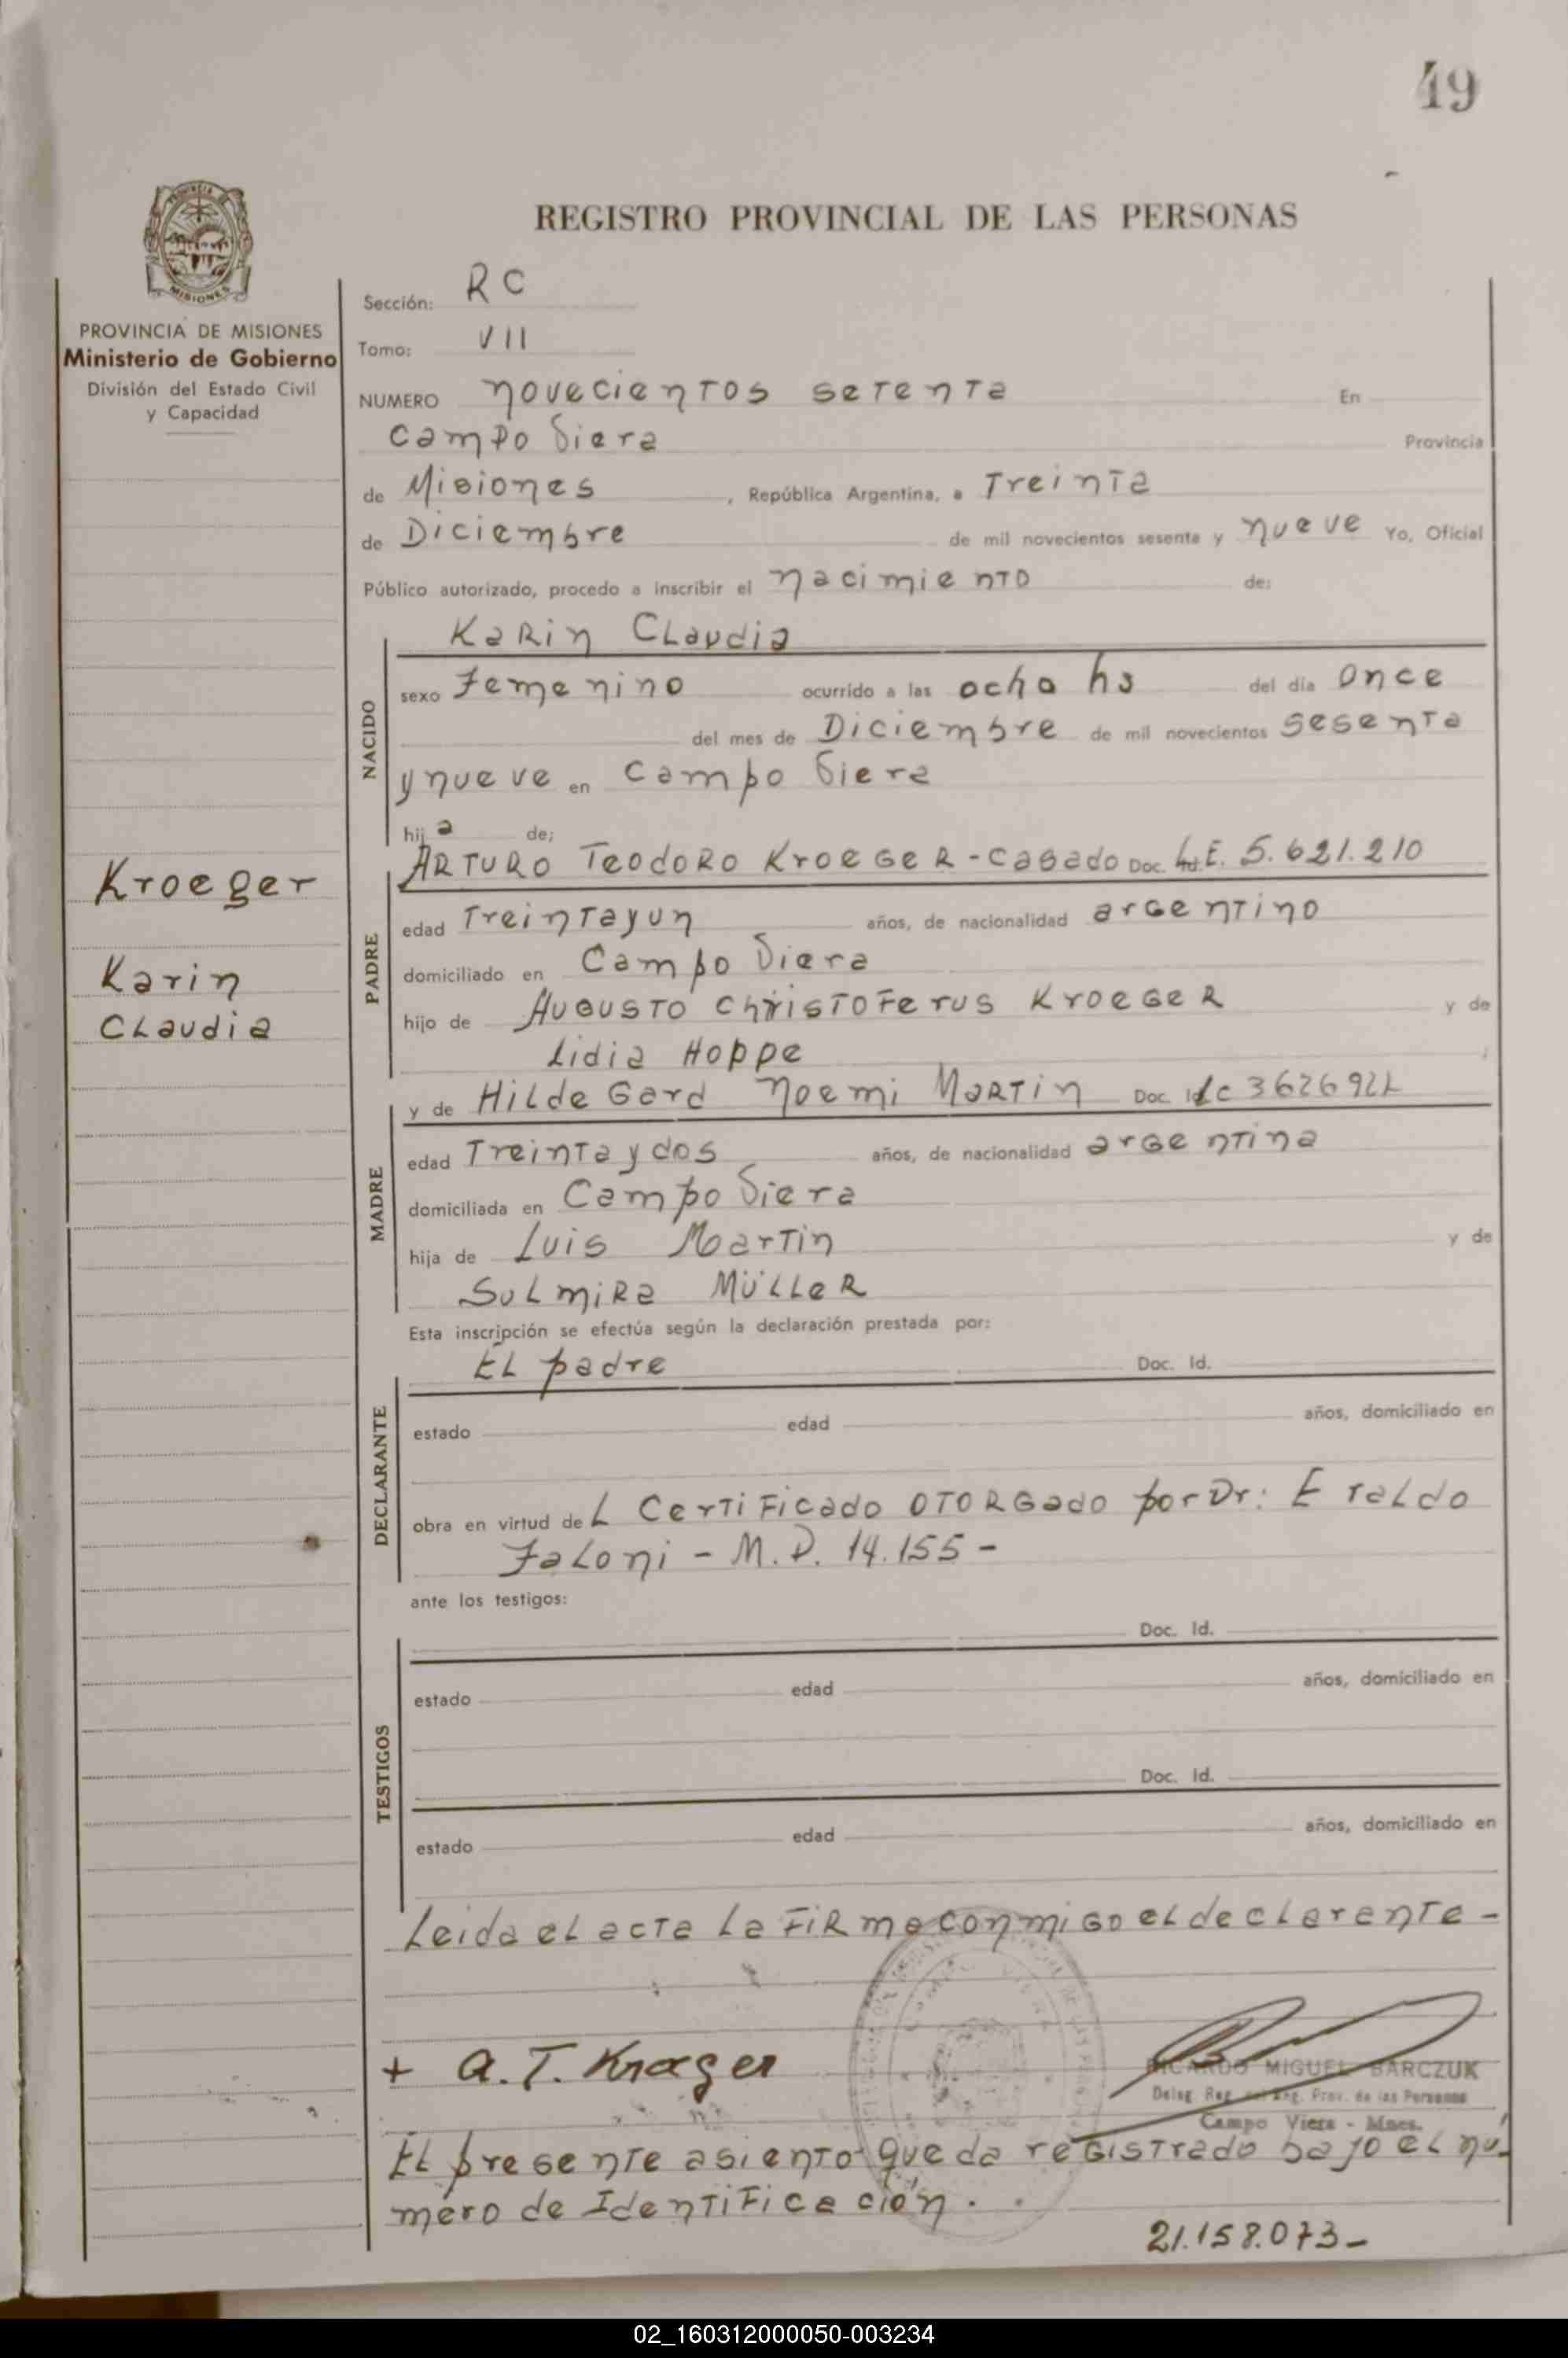 49
PROVINCIA DE MISIONES
Ministerio de Gobierno
División del Estado Civil
y Capacidad
Kroeger
Karin
Claudia
REGISTRO PROVINCIAL DE LAS PERSONAS
Sección: RC
Tomo: VII
NUMERO novecientos setenta En
Campo Viera Provincia
de Misiones, República Argentina, a Treinta
de Diciembre de mil novecientos sesenta y nueve Yo, Oficial
Público autorizado, procedo a inscribir el nacimiento de:
Karin Claudia
NACIDO
sexo Femenino ocurrido a las ocho hs del día once
del mes de Diciembre de mil novecientos sesenta
y nueve en Campo Viera
hija de:
ARTURO Teodoro Kroeger - Casado Doc. L.E. 5.621.210
PADRE
edad Treinta y un años, de nacionalidad argentino
domiciliado en Campo Viera
hijo de Augusto Christoferus Kroeger y de
Lidia Hoppe
y de Hilde Gard Noemi Martin Doc. LC
MADRE
edad Treinta y dos años, de nacionalidad argentina
domiciliada en Campo Viera
hija de Luis Martin y de
Sulmira Müller
Esta inscripción se efectúa según la declaración prestada por:
El padre Doc. Id.
DECLARANTE
estado edad años, domiciliado en
obra en virtud del Certificado otorgado por Dr: Eraldo
Faloni - M.P. 14.155 -
ante los testigos:
Doc. Id.
TESTIGOS
estado edad años, domiciliado en
Doc. Id.
estado edad años, domiciliado en
Leida el acta la firma conmigo el declarente -
+ A. T. Kroeger
RICARDO MIGUEL BARCZUK
Deleg. Reg. Prov. de las Personas
Campo Viera - Mnes.
El presente asiento queda registrado bajo el nú-
mero de Identificación.
21.158.073-
02_160312000050-003234